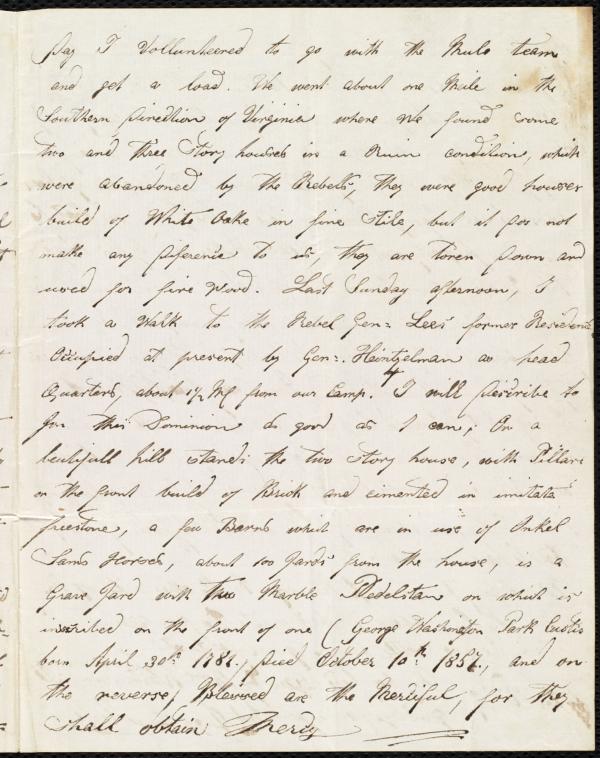 Day I Vollunteered to go with the Mule team
and get a load. We went about one Mile in the
Southern Direction of Virginia where we found some
two and three Story houses in a Ruin condition, which
were abandoned by the Rebells, they were good houses
build of White Oake in fine Stile, but it dos not
make any diference to us, they are toren down and
used for fire wood. Last Sunday afternoon, I
took a Walk to the Rebel Gen= Lees former Residence
Occupied at present by Gen=. Heintzelman as head
Quarters, about 1½ Ml from our Camp. I will Describe to
You this Dominion as good as I can; On a
beutifull hill stands the two Story house, with Pillars
on the front build of Brick and cimented in imitata
freestone, a few Barns which are in use of Onkel
Sams Horses, about 100 Yards from the house, is a
Grave Yard with two Marble Pedelstaw on which is
inscribed on the front of one (George Washington Park Custis
born April 30th 1781., Died October 10th 1857., and on
the reverse, Blessed are the Merciful, for they
Shall obtain Mercy